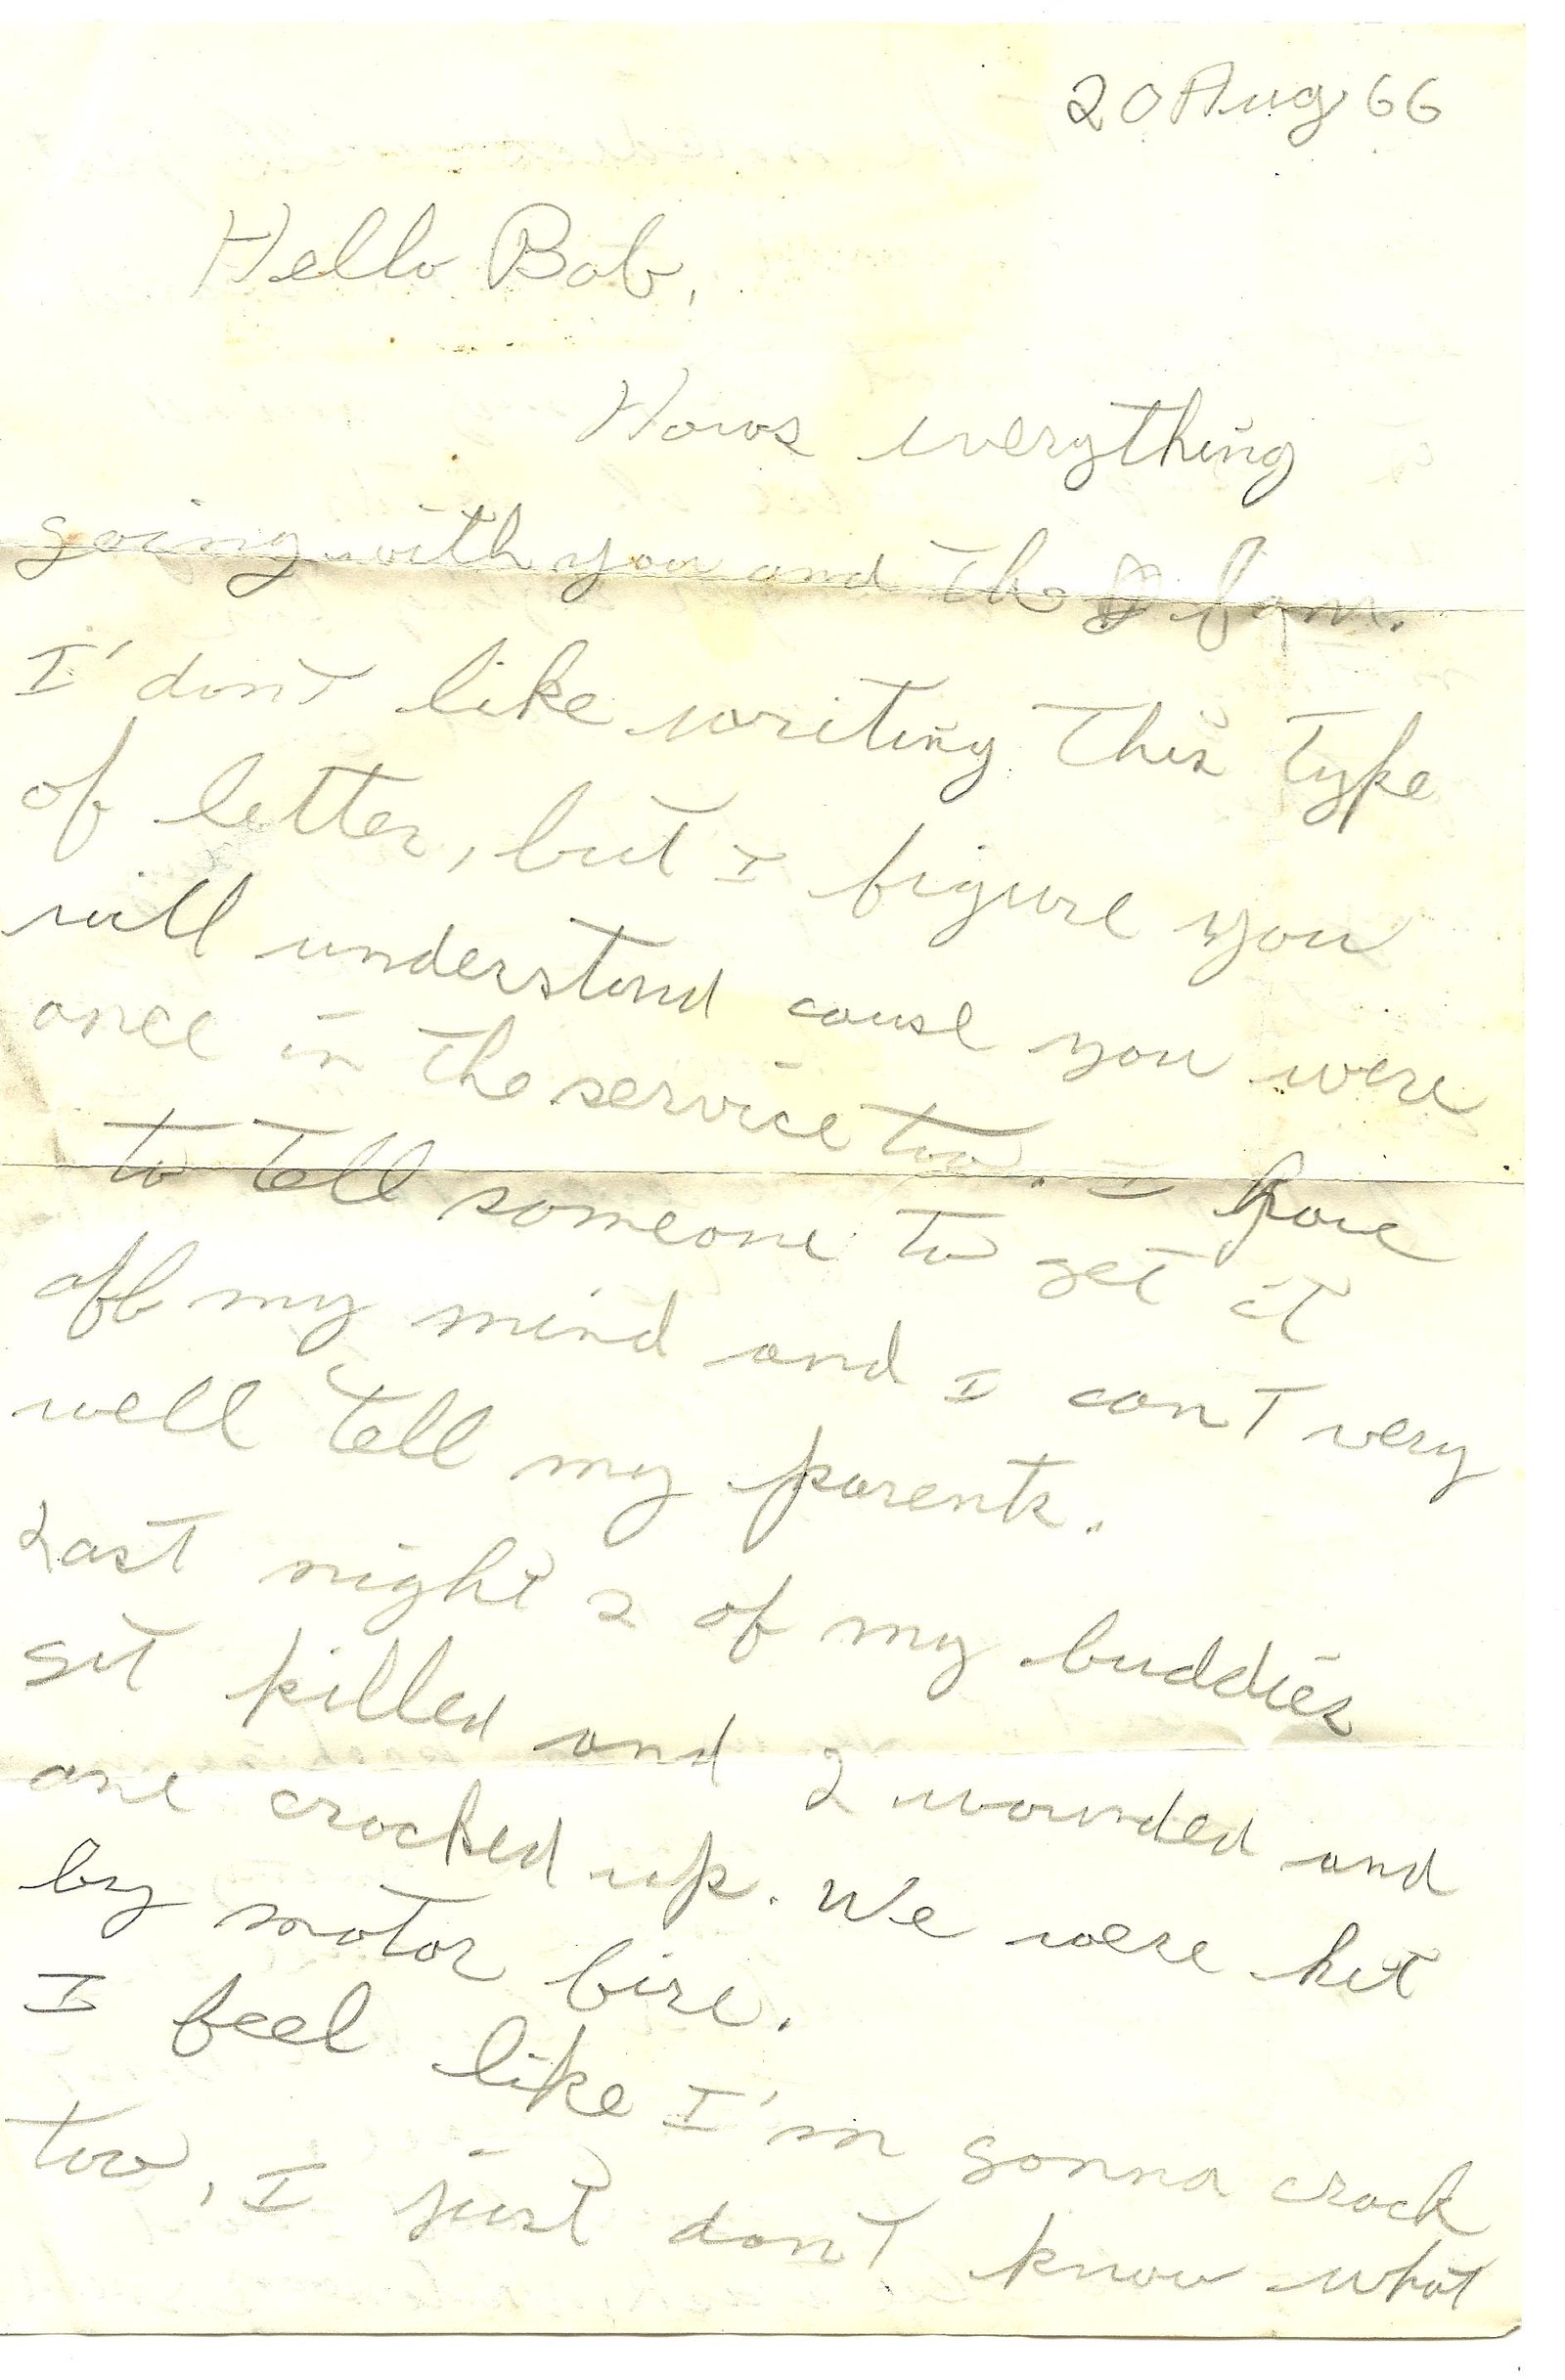 20 Aug 66
Hello Bob,
Hows everything
going with you and the fam.
I' don't like writing this type
of letter, but I figure you
will understand cause you were
once in the service too. I have
to tell someone to get it
off my mind and I can't very
well tell my parents.
Last night 2 of my buddies
got killed and 2 wounded and
one cracked up. We were hit
by motor fire.
I feel like I'm gonna crack
too, I just don't know what